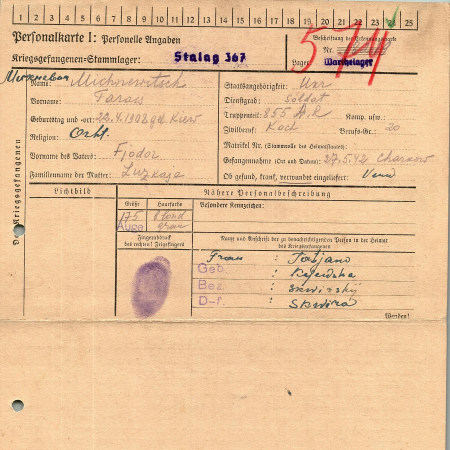 1 2 3 4 5 6 7 8 9 10 11 12 13 14 15 16 17 18 19 20 21 22 23 24 25
Personalkarte I: Personelle Angaben
Kriegsgefangenen-Stammlager: Stalag 367
Beschriftung der Erkennungsmarke
Nr.
Lager: Warthelager
574
Des Kriegsgefangenen
Name: Michnewitsch
Vorname: Taras
Geburtstag und -ort: 22.4.1908
Religion: Orth.
Vorname des Vaters: Fjodor
Familienname der Mutter:
Staatsangehörigkeit: Ukr
Dienstgrad: Soldat
Truppenteil: 855 A.R Komp. usw.:
Zivilberuf: Koch Berufs-Gr.: 20
Matrikel Nr. (Stammrolle des Heimatstaates):
Gefangennahme (Ort und Datum): 27.5.42 Charkow
Ob gesund, krank, verwundet eingeliefert:
Lichtbild
Nähere Personalbeschreibung
Größe Haarfarbe Besondere Kennzeichen:
175 blond
Auge grau
Fingerabdruck
des rechten! Zeigefingers
Name und Anschrift der zu benachrichtigenden Person in der Heimat
des Kriegsgefangenen
Frau :
Geb. :
Bez. : Skwirskij
D-f. : Skwira
Wenden!